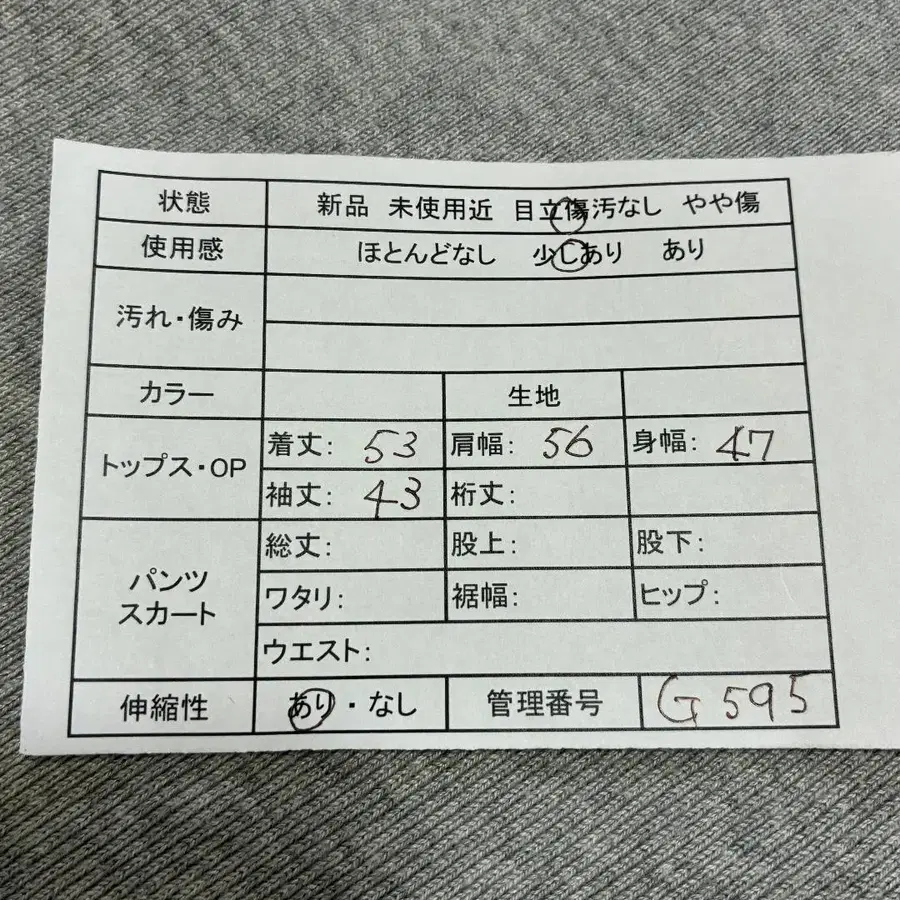 状態 新品 未使用近 目立傷汚なし やや傷
使用感 ほとんどなし 少しあり あり
汚れ・傷み
カラー 生地
トップス・OP 着丈: 53 肩幅: 56 身幅: 47
袖丈: 43 裄丈:
パンツ
スカート
総丈: 股上: 股下:
ワタリ: 裾幅: ヒップ:
ウエスト:
伸縮性 あり・なし 管理番号 G595